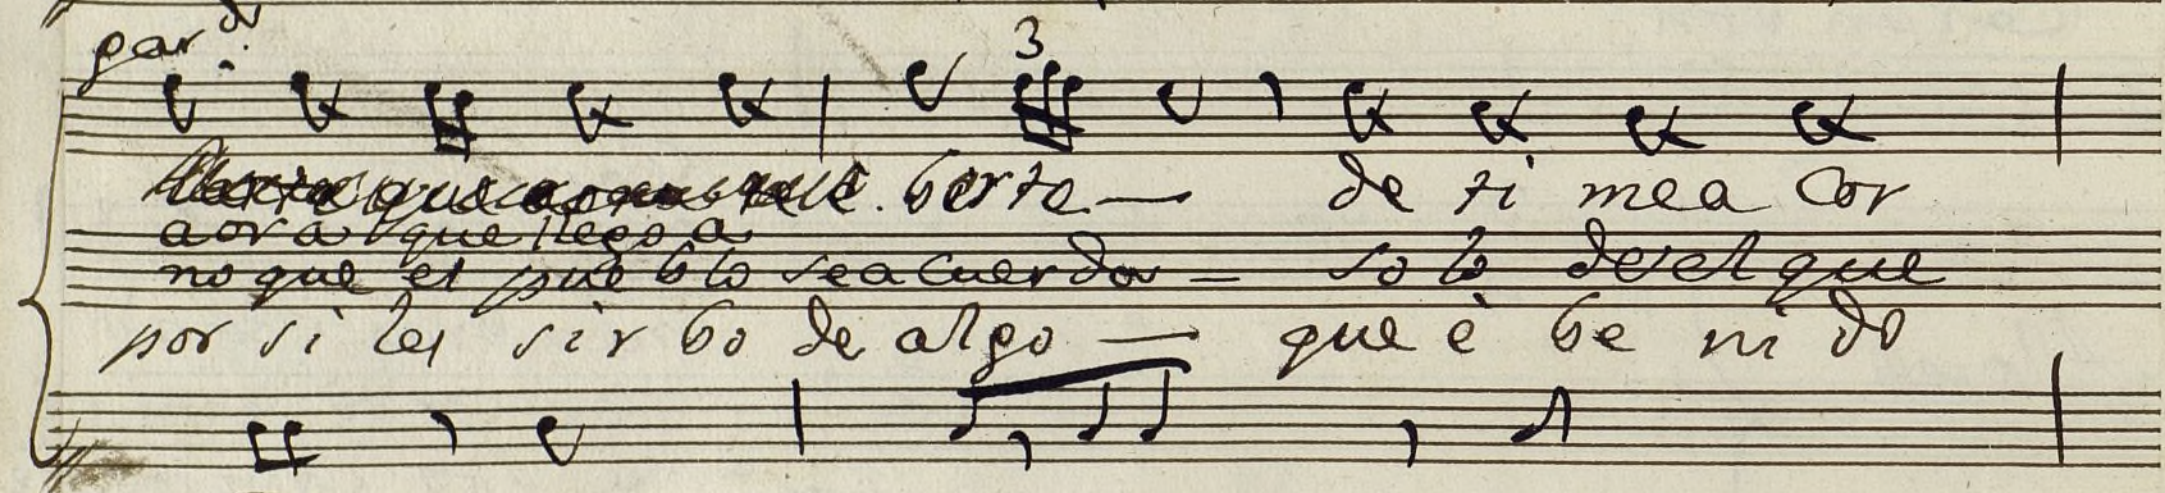 par.do
3
berte — de ti mea cor
aora que llego a
no que el pueblo sea cuerda — solo desel que
por si les sirbo de algo — que è be ni do